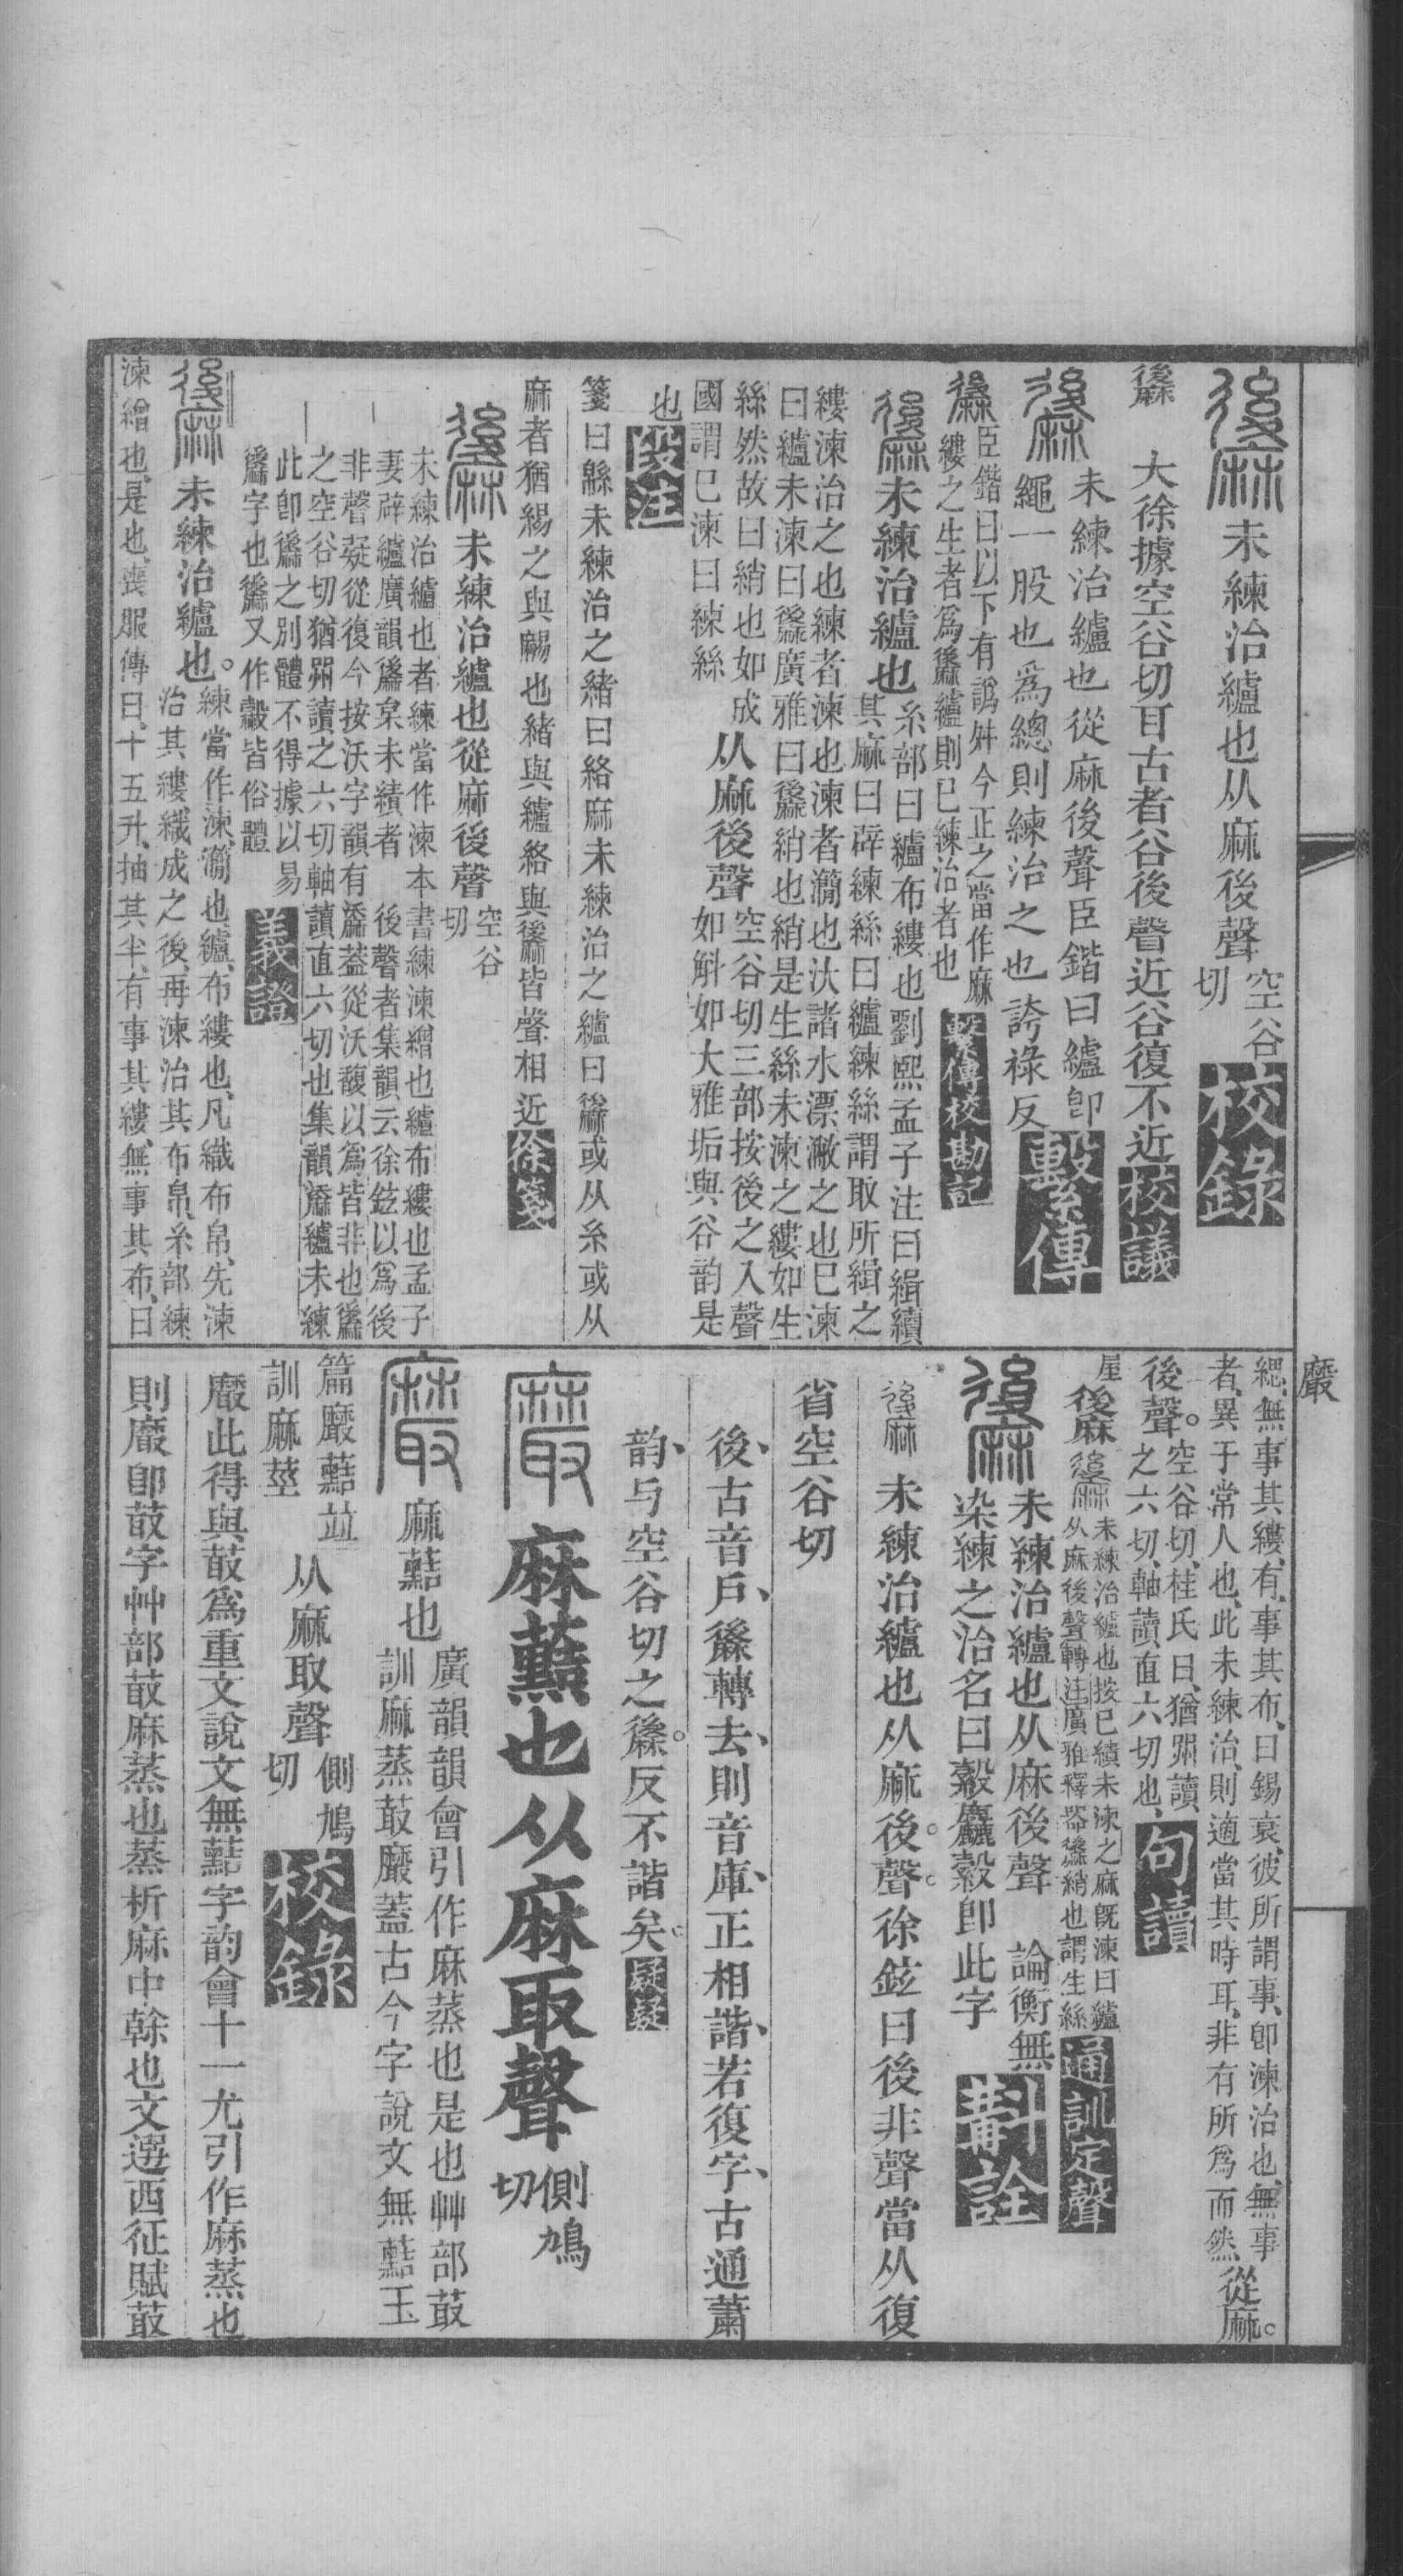 未練治纑也从麻後聲空谷切校錄
大徐據空谷切耳古者谷後聲近谷復不近校議
未練治纑也從麻後聲臣鍇曰纑卽
繩一股也爲總則練治之也誇祿反繫傳
臣鍇曰以下有譌舛今正之當作麻
縷之生者爲䌛纑則已練治者也繫傳校勘記
未練治纑也糸部曰纑布縷也劉熙孟子注曰緝績
其麻曰辟練絲曰纑練絲謂取所緝之
縷湅治之也練者湅也湅者㶕也㳊諸水漂潎之也已湅
曰纑未湅曰䌛廣雅曰䌛綃也綃是生絲未湅之縷如生
絲然故曰綃也如成
國謂已湅曰練絲
也段注
从麻後聲空谷切三部按後之入聲
如斛如大雅垢與谷韵是
箋曰緜未練治之緒曰絡麻未練治之纑曰䌛或从糸或从
麻者猶緆之與䴮也緒與纑絡與䌛皆聲相近徐箋
未練治纑也從麻後聲空谷切
未練治纑也者練當作湅本書練湅繒也纑布縷也孟子
妻辟纑廣韻䌛枲未績者後聲者集韻云徐鉉以爲後
非聲疑從復今按沃字韻有䌛蓋從沃馥以爲皆非也䌛
之空谷切猶粥讀之六切軸讀直六切也集韻䌛纑未練
此卽䌛之別體不得據以易
䌛字也䌛又作縠皆俗體義證
未練治纑也。練當作湅、㶕也、纑、布縷也、凡織布帛、先湅
治其縷、織成之後、再湅治其布帛、糸部練
湅繒也、是也、喪服傳曰、十五升、抽其半、有事其縷、無事其布、曰
緦、無事其縷、有事其布、曰錫衰、彼所謂事、卽湅治也、無事
者、異于常人也、此未練治、則適當其時耳、非有所爲而然、從麻。
後聲。空谷切、桂氏曰、猶粥讀、
之六切、軸讀直六切也、句讀
屋
未練治纑也按已績未湅之麻旣湅曰纑
从麻後聲轉注廣雅釋器䌛綃也謂生絲通訓定聲
未練治纑也从麻後聲 論衡無
染練之治名曰縠麤縠卽此字斠詮
未練治纑也从麻後。聲。徐鉉曰後非聲當从復
省空谷切
後、古音戶、䌛轉去、則音庫、正相諧、若復字、古通蕭
韵、与空谷切之䌛。反不諧矣。疑疑
麻藍也从麻取聲側鳩切
麻藍也廣韻韻會引作麻蒸也是也艸部菆
訓麻蒸菆黀蓋古今字說文無䕸玉
篇黀䕸竝
訓麻莖从麻取聲側鳩切校錄
黀此得與菆爲重文說文無䕸字韵會十一尤引作麻蒸也
則黀卽菆字艸部菆麻蒸也蒸析麻中榦也文選西征賦菆
黀